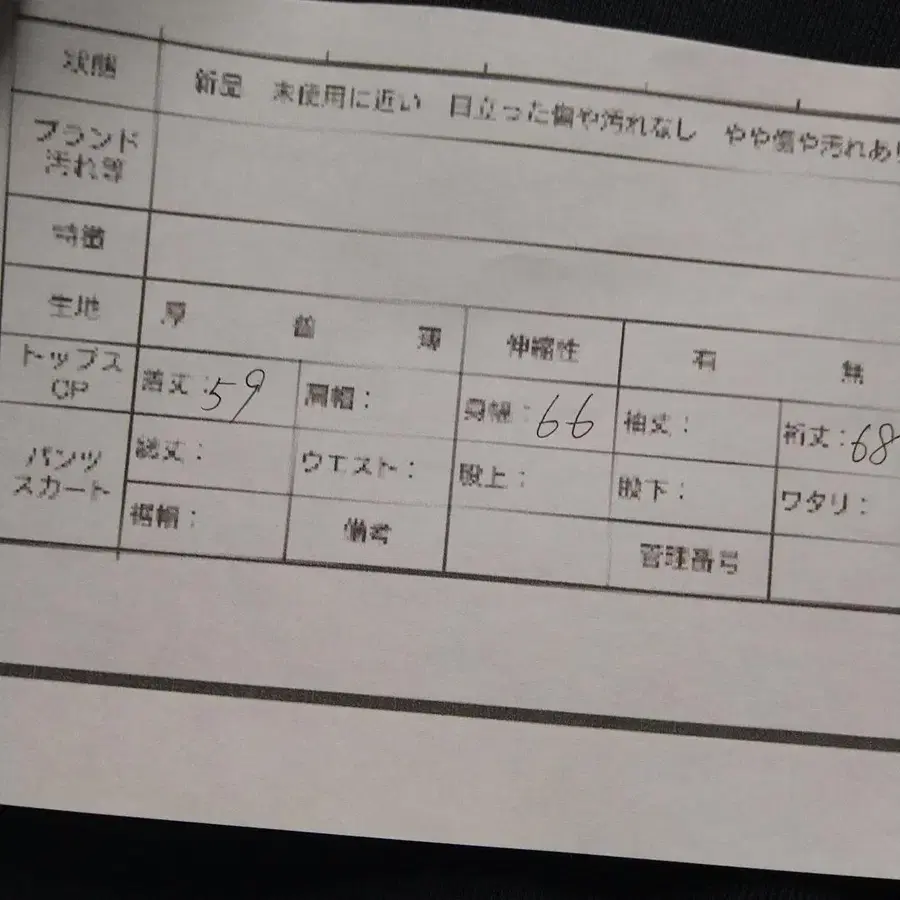 状態 新品 未使用に近い 目立った傷や汚れなし やや傷や汚れあり
ブランド
汚れ等
特徴
生地 厚 普 薄 伸縮性 有 無
トップス
OP
着丈:59 肩幅: 身幅:66 袖丈: 裄丈:68
パンツ
スカート
総丈: ウエスト: 股上: 股下: ワタリ:
裾幅: 備考 管理番号